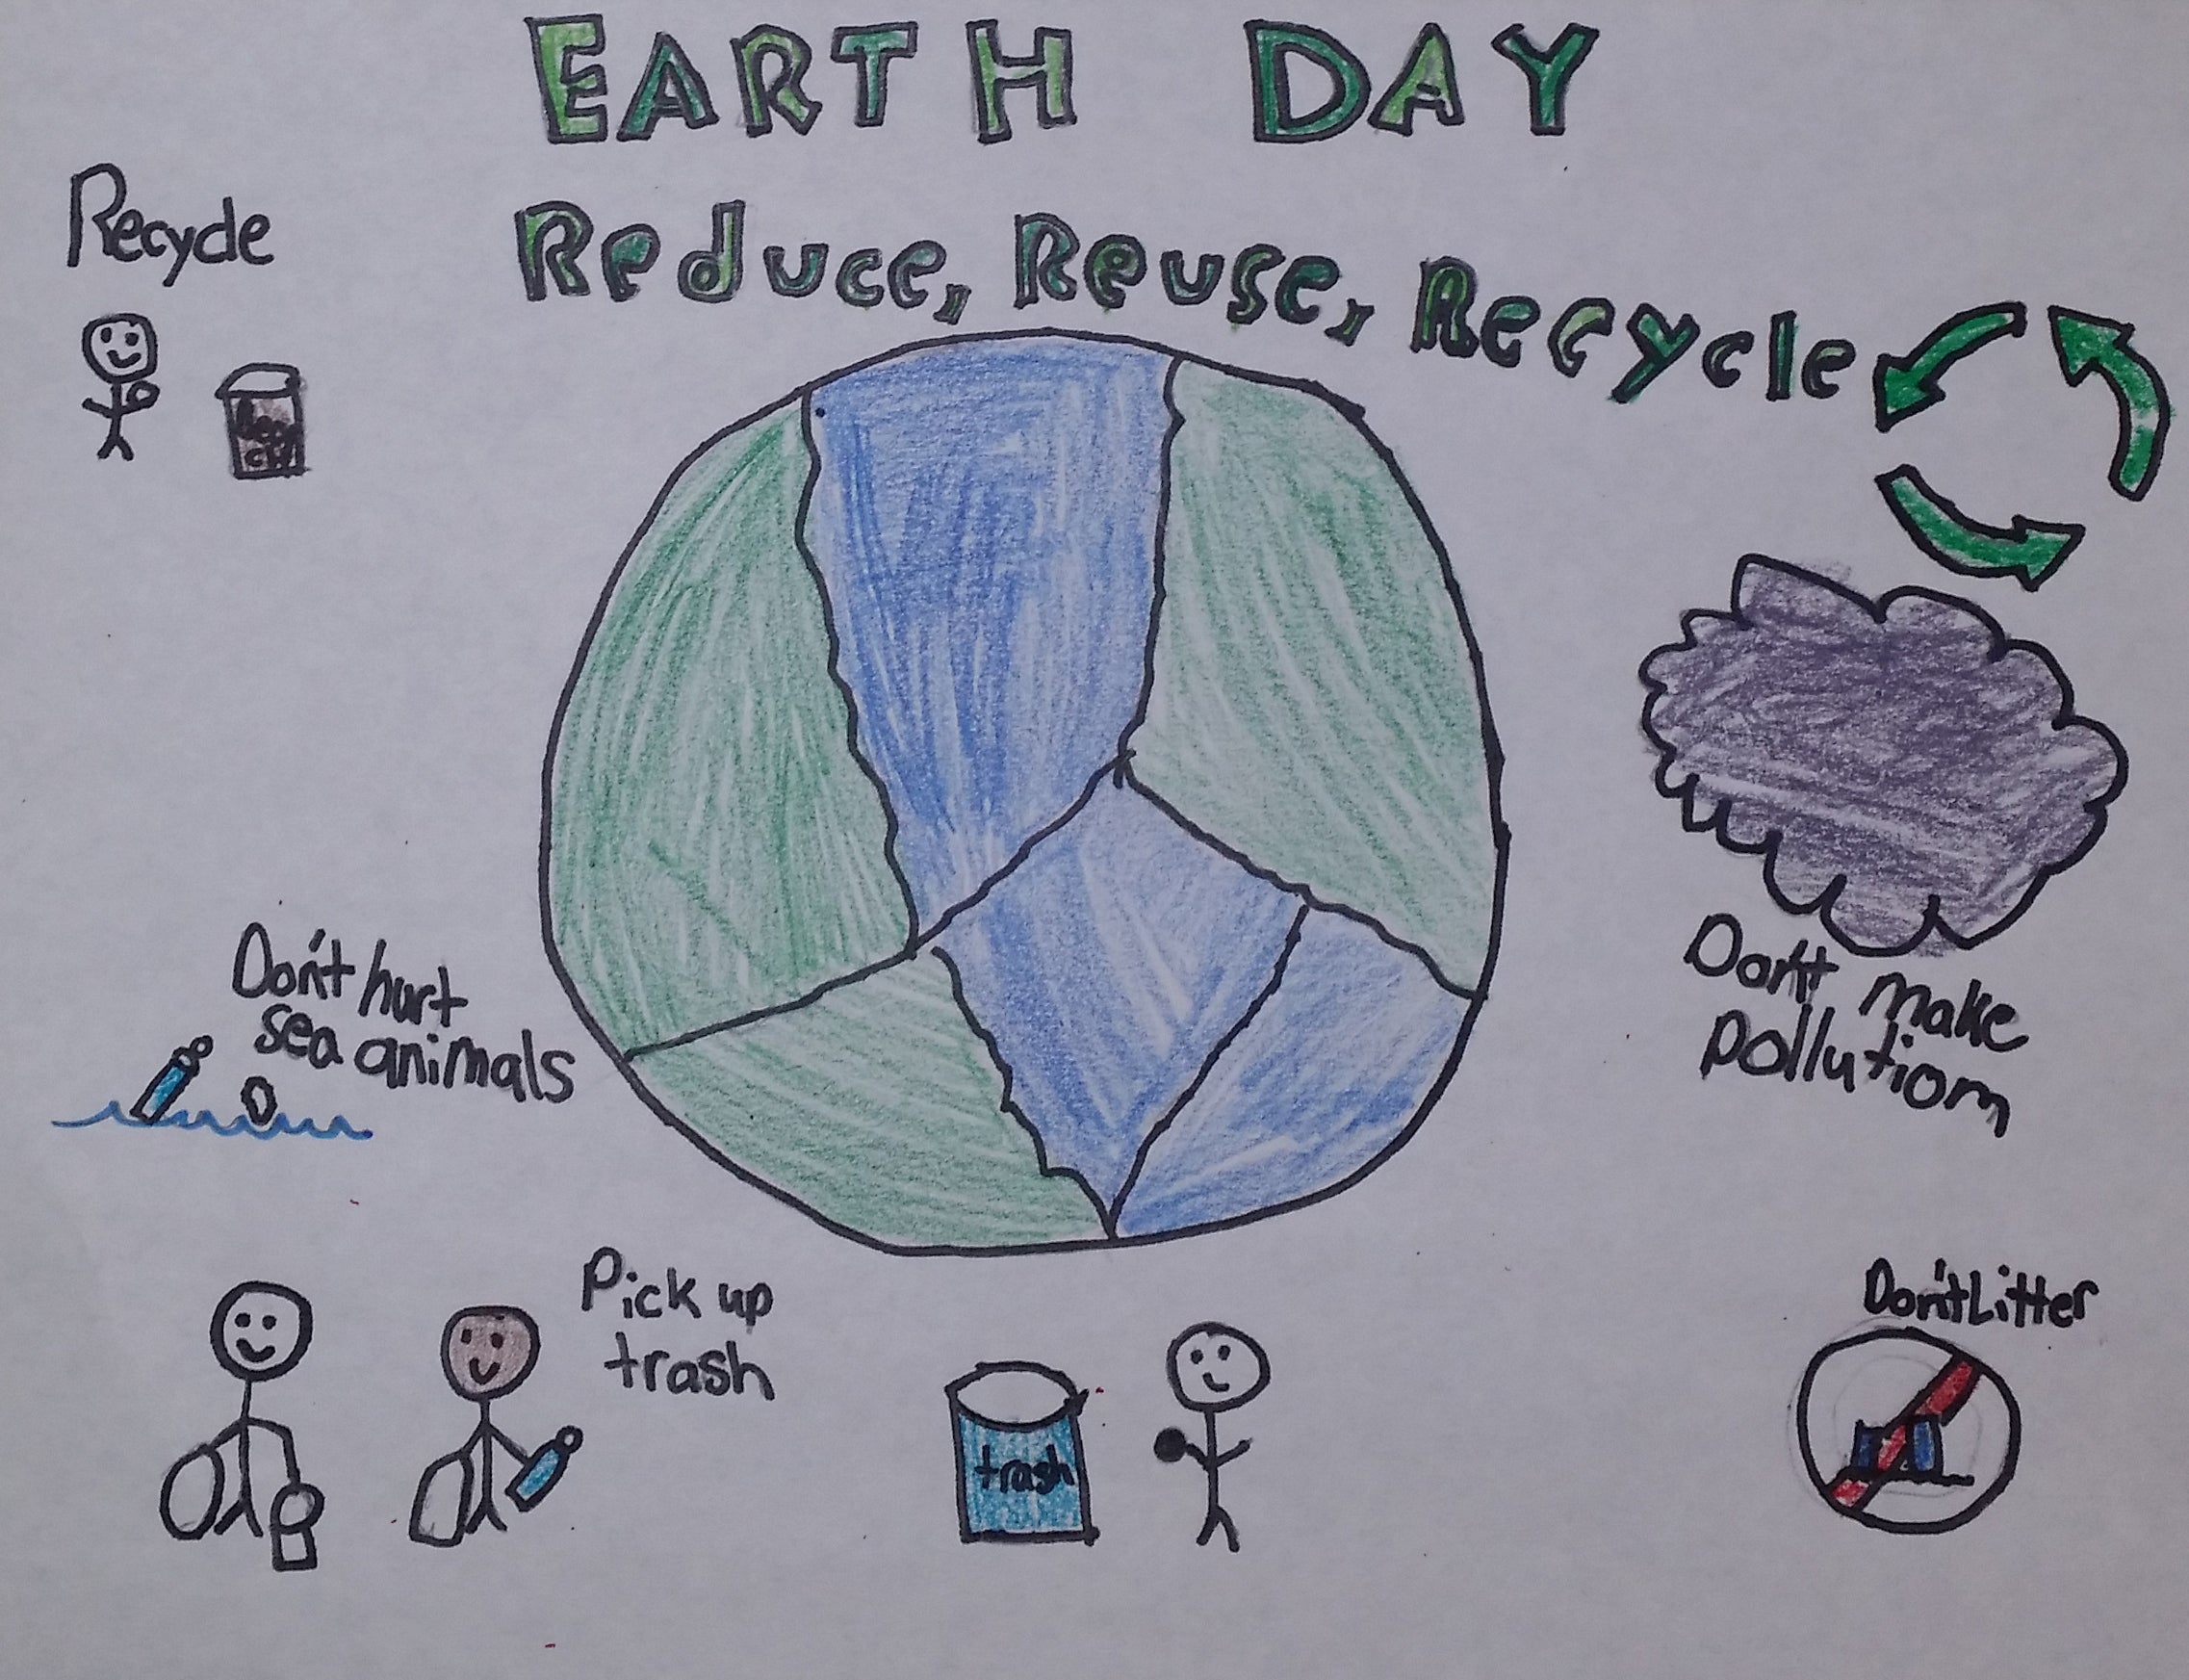 EARTH DAY
Recycle
Reduce, Reuse, Recycle
Don't hurt
sea animals
Don't make
pollution
Pick up
trash
trash
Don't Litter